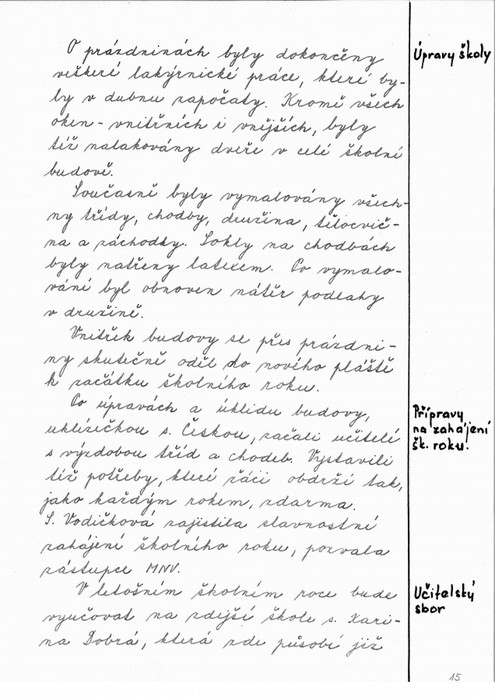 O prázdninách byly dokončeny
Úpravy školy
veškeré lakýrnické práce, které by-
ly v dubnu započaty. Kromě všech
oken - vnitřních i vnějších, byly
též nalakovány dveře v celé školní
budově.
Současně byly vymalovány všech-
ny třídy, chodby, družina, tělocvič-
na a záchodky. Sokly na chodbách
byly natřeny latexem. Po vymalo-
vání byl obnoven nátěr podlahy
v družině.
Vnitřek budovy se přes prázdni-
ny skutečně oděl do nového pláště
k začátku školního roku.
Po úpravách a úklidu budovy,
Přípravy
na zahájení
šk. roku.
uklízečkou s. Českou, začali učitelé
s výzdobou tříd a chodeb. Vystavili
též potřeby, které žáci obdrží tak,
jako každým rokem, zdarma.
S. Vodičková zajistila slavnostní
zahájení školního roku, pozvala
zástupce MNV.
V letošním školním roce bude
Učitelský
sbor
vyučovat na zdejší škole s. Kari-
na Dobrá, která zde působí již
15